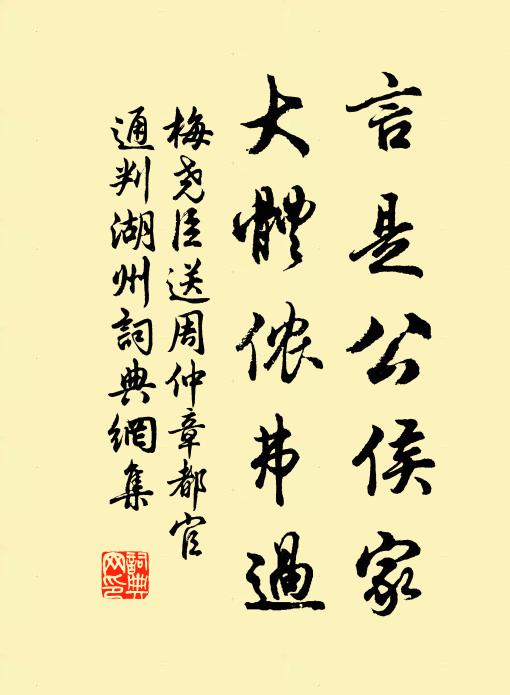 言是公侯家
大體侬弗過
梅尧臣送周仲章都官
通判湖州詞典網集
詞典网印